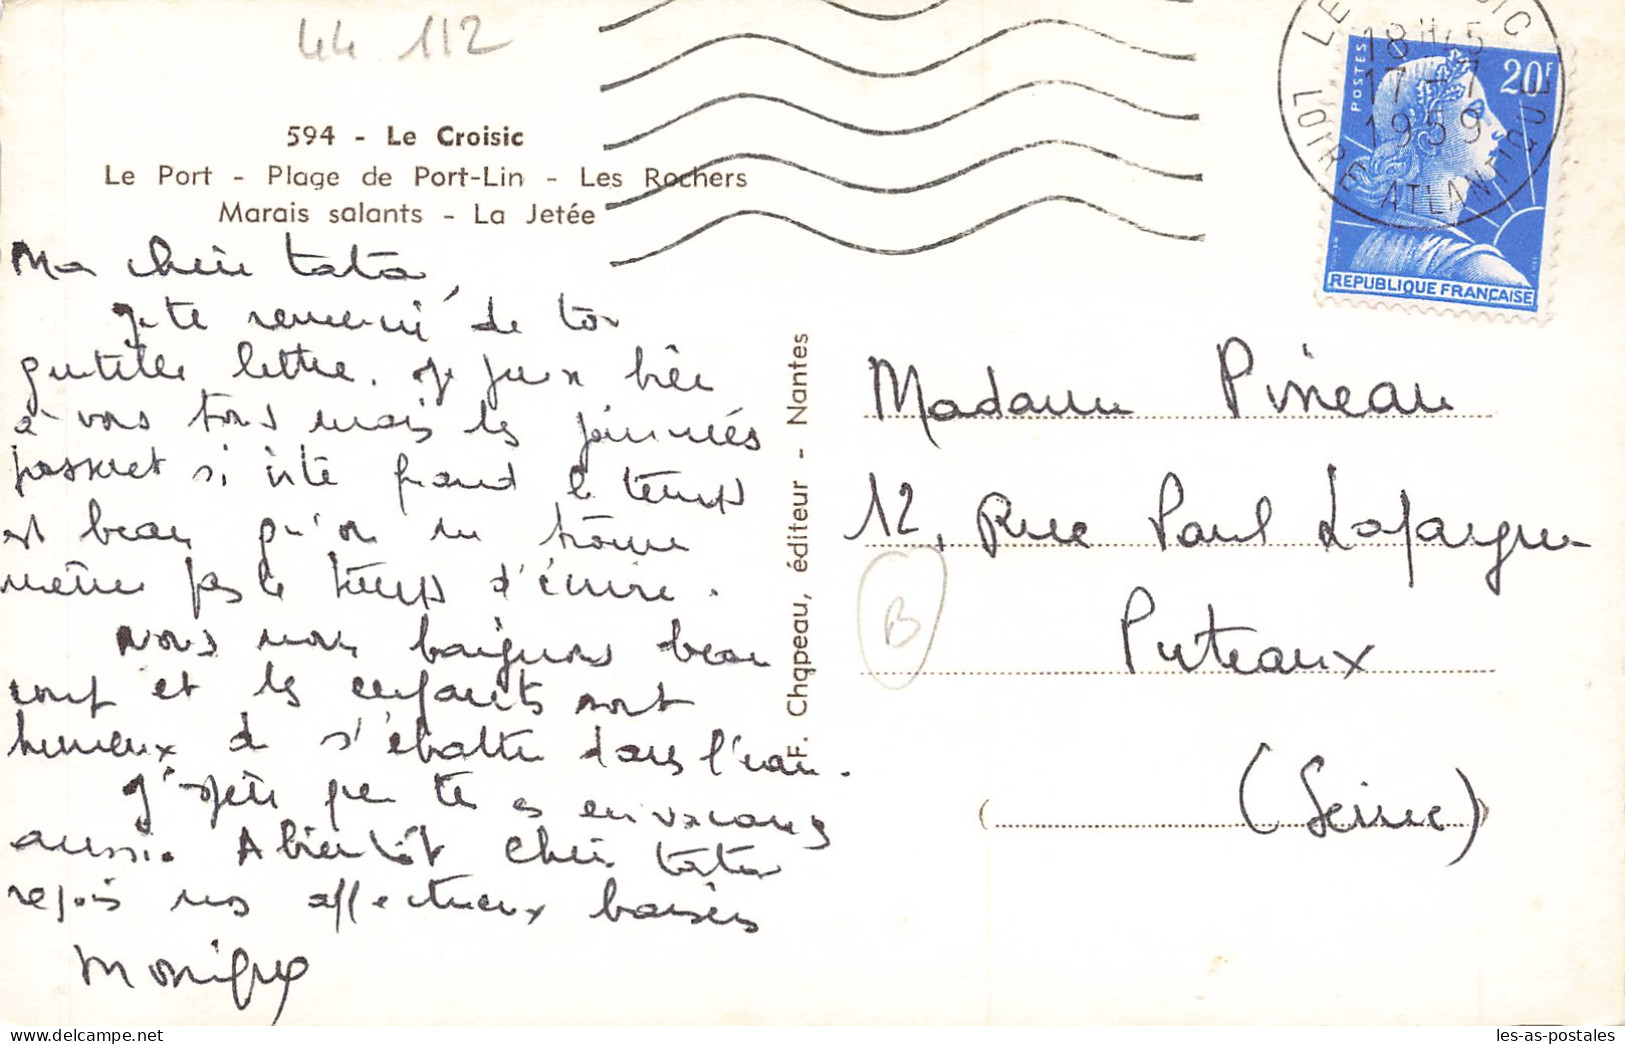 44 112
594 - Le Croisic
Le Port - Plage de Port-Lin - Les Rochers
Marais salants - La Jetée
Ma chère tata
Je te remercie de ton
gentille lettre. Je pense bien
à vous tous mais les journées
passent si vite quand le temps
est beau qu'on ne trouve
même pas le temps d'écrire.
Nous nous baignons beau
coup et les enfants sont
heureux de s'ébattre dans l'eau.
J'espère que tu es en vacances
aussi. A bientôt chère tata
reçois nos affectueux baisers
Monique
F. Chapeau, éditeur - Nantes
LE CROISIC
18H45
17-7
1959
LOIRE ATLANTIQUE
POSTES
20F
REPUBLIQUE FRANÇAISE
Madame Pineau
12, Rue Paul Lafargue
Puteaux
(Seine)
B
les-as-postales
delcampe.net